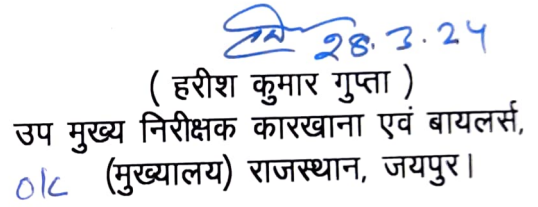 28.3.24
( हरीश कुमार गुप्ता )
उप मुख्य निरीक्षक कारखाना एवं बायलर्स,
o/c (मुख्यालय) राजस्थान, जयपुर।